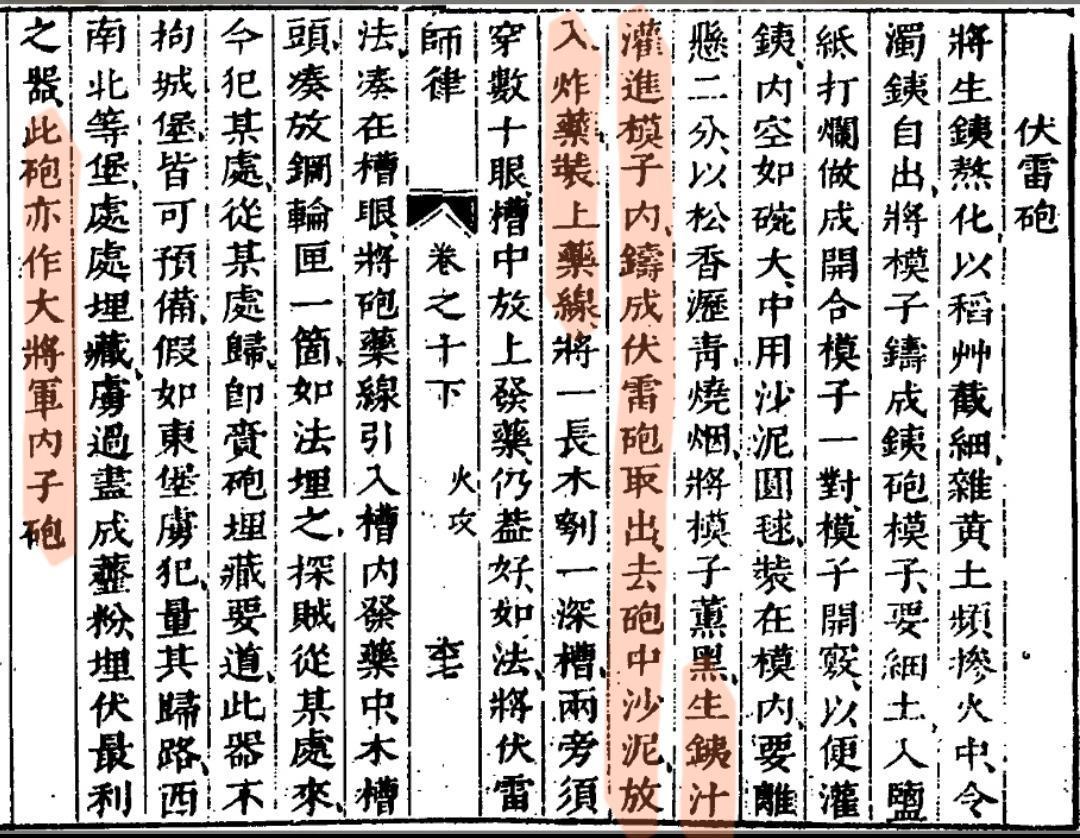 伏雷砲
將生銕熬化、以稻艸截細、雜黃土頻摻火中、令
濁銕自出、將模子鑄成銕砲模子、要細土、入鹽
紙打爛做成開合模子一對、模子開竅、以便灌
銕、內空如碗大、中用沙泥圓毬、裝在模內、要離
懸二分、以松香瀝青燒烟、將模子薰黑、生銕汁
灌進模子內、鑄成伏雷砲取出、去砲中沙泥、放
入炸藥、裝上藥線、將一長木刳一深槽、兩旁須
穿數十眼、槽中放上發藥、仍蓋好、如法、將伏雷
師律 卷之十下 火攻
法、湊在槽眼、將砲藥線引入槽內發藥中、木槽
頭、湊放鋼輪匣一箇、如法埋之、探賊從某處來、
今犯某處、從某處歸、卽賷砲埋藏要道、此器不
拘城堡、皆可預備、假如東堡虜犯、量其歸路、西
南北等堡、處處埋藏、虜過盡成虀粉、埋伏最利
之器、此砲亦作大將軍內子砲